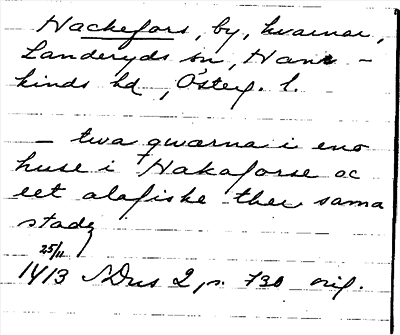 Hackefors, by, kvarnar,
Landeryds sn, Hane-
kinds hd, Österg. l.
— twa qwarna i eno
huse i Hakaforse oc
eet alafiske ther sama
stadz
25/11
1413 SDns 2, n. 730 orig.